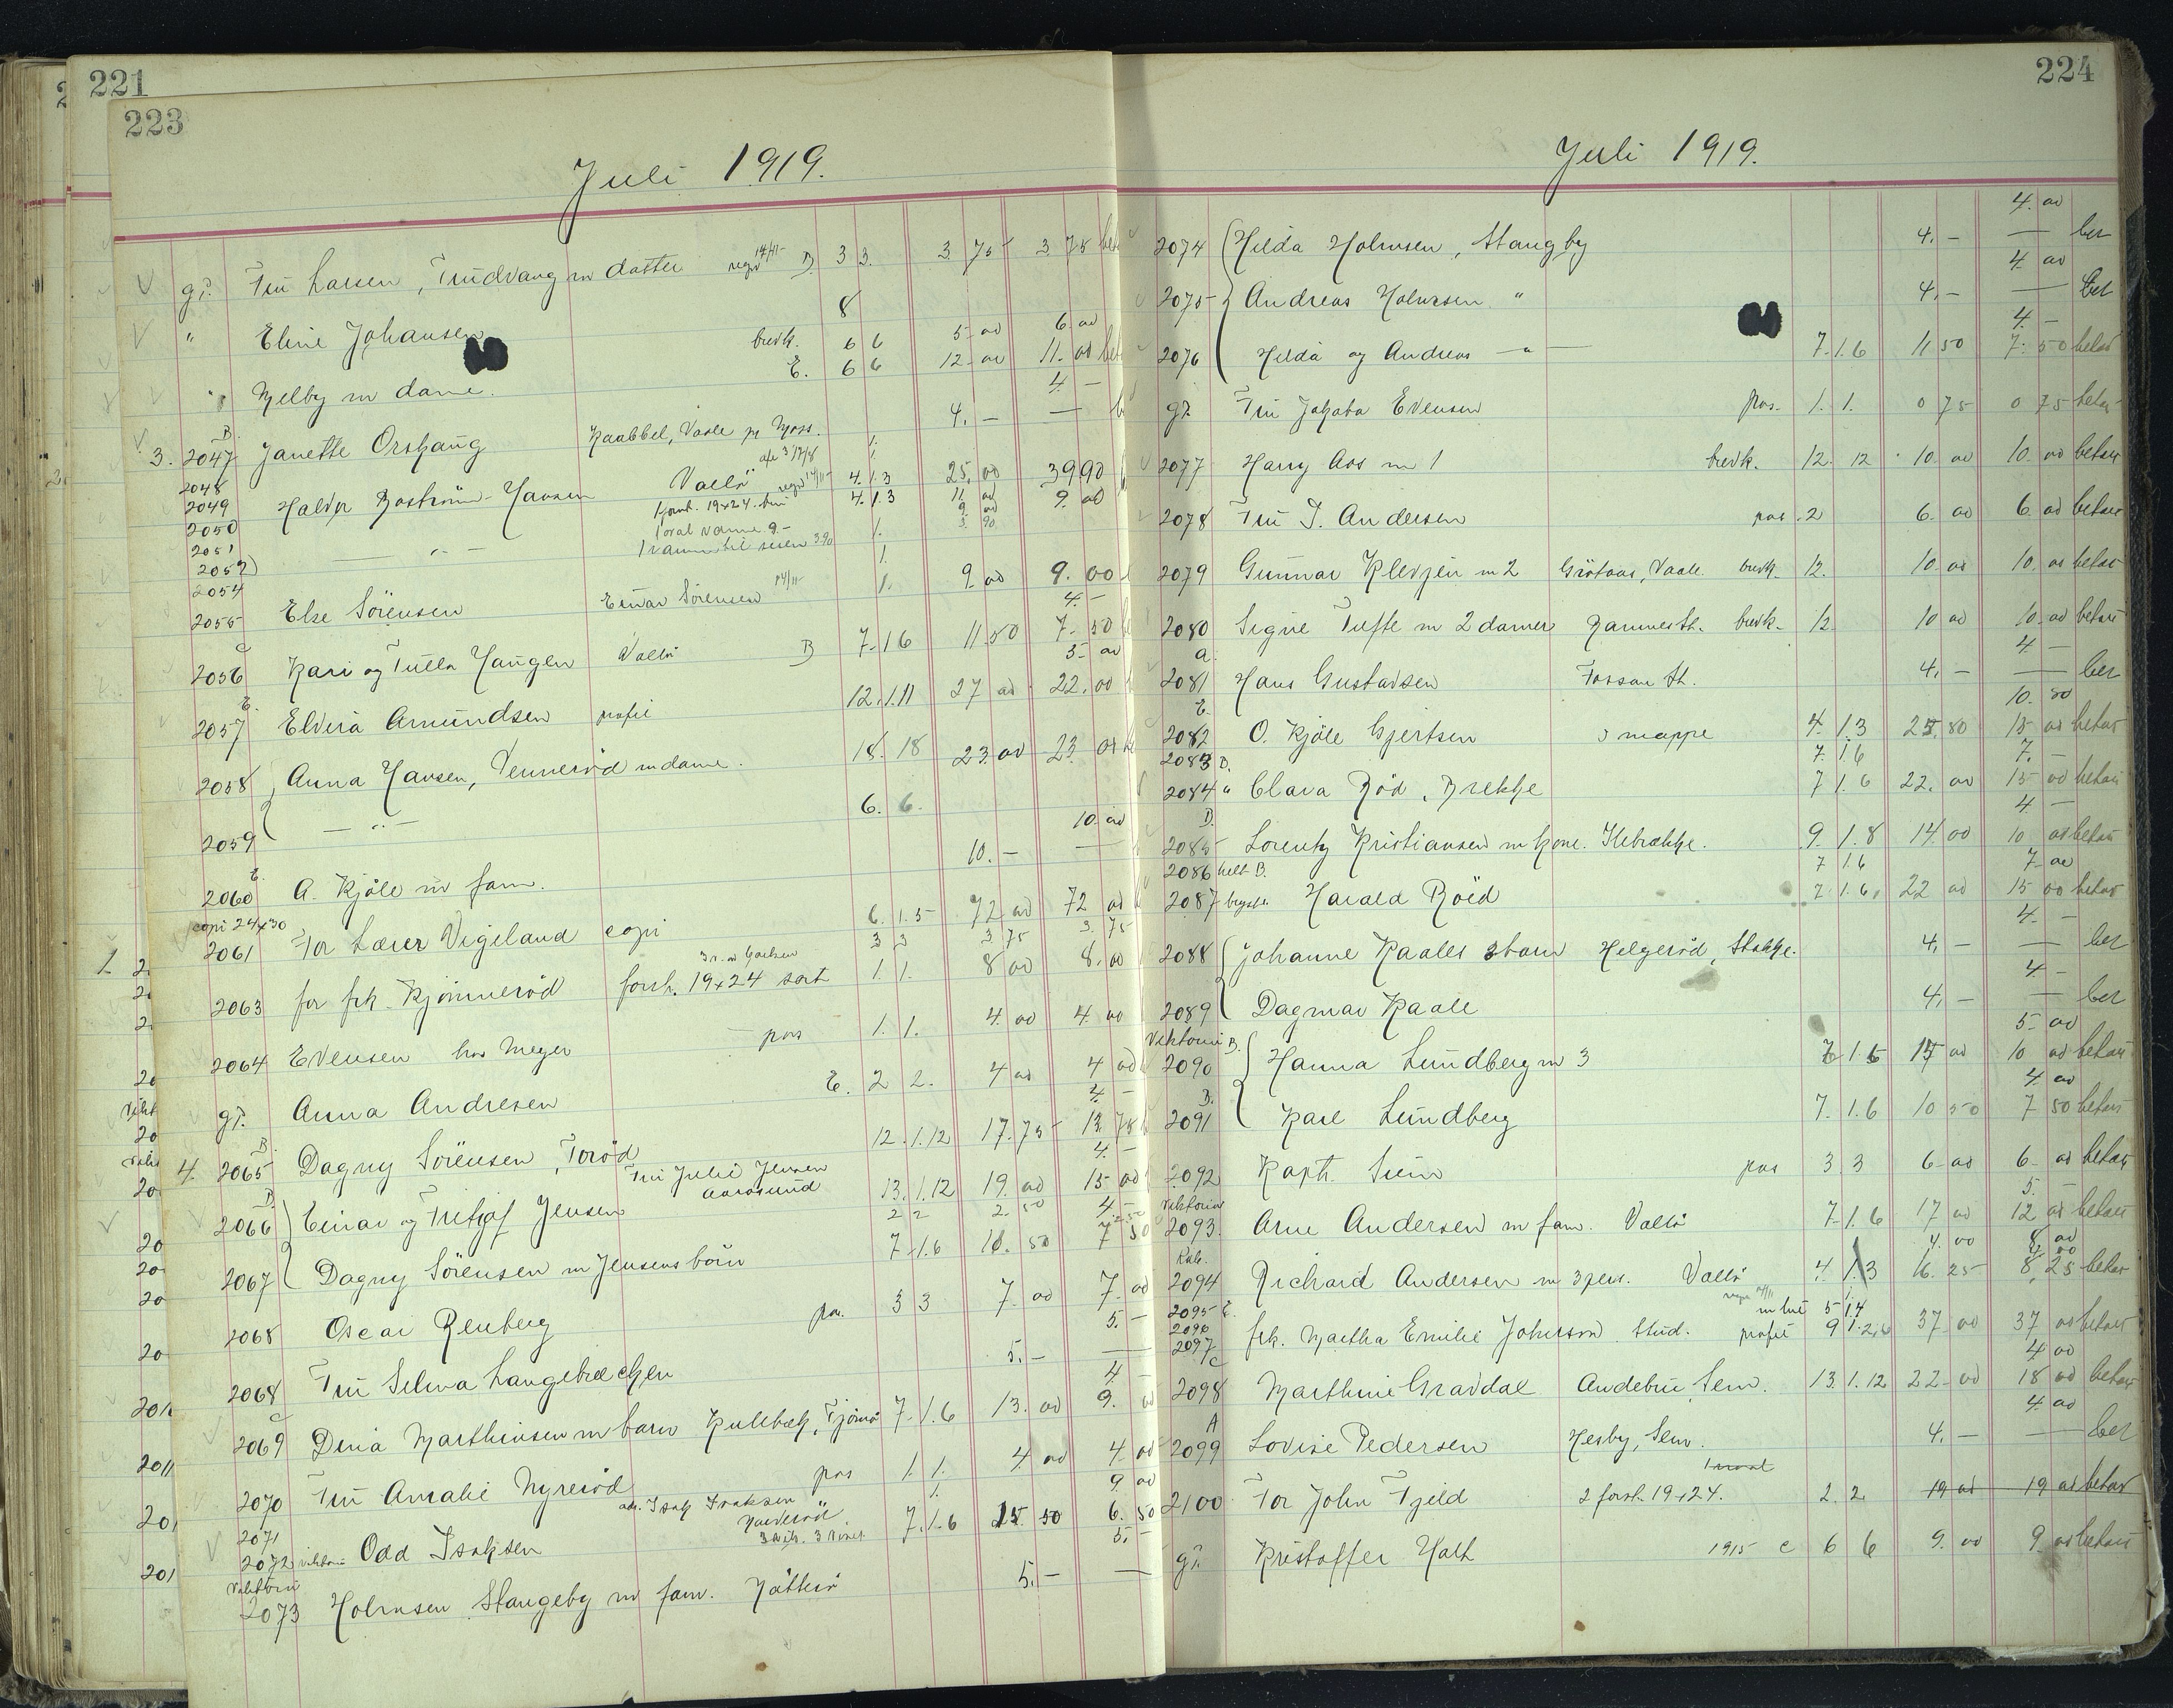 221
223
Juli 1919.
gl. Fru Larsen, Trudvang m datter regn 14/11- D. 3 3. 3 75 3 75 bet
8
" Eline Johansen brevk. 6 6 5 00 6 00
" Melby m dame. E. 6 6 12 00 11. 00 bet
4. -
B.
3. 2047 Janette Orskaug Kaabbel, Vaale pr Moss. 4. - —
2048
2049 Halvor Boström-Hansen Vallö 4.1.3 25. 00 39 90
2050 1 forst. 19x24 4.1.3 11 00 9. 00
2051 1 oval ramme 9.- 1. 9 00
2052) — " — 1. 3. 90
2054
2055 Else Sörensen Einar Sörensen 14/11- 1. 9. 00 9. 00
4. -
2056 Kari og Tulla Haugen Vallö B 7.1.6 11.50 7. 50
5. 00
E.
2057 Elvira Amundsen profil 12.1.11 27 00 22. 00
2058 Anna Hansen, Vennerød m dame. 18. 18 23 00 23 00
2059 — " — 6. 6.
10. 00
E.
2060 A. Kjøle m fam. 10. - —
copi 24x30
2061 For Lærer Vigeland copi 6.1.5 72 00 72 00
3 3 3 75 3. 75
2063 for frk. Kjønnerød forst. 19x24 sort 1. 1. 8 00 8. 00
2064 Evensen hos Meyer pos 1. 1. 4. 00 4. 00
gl. Anna Andresen E. 2 2. 4 00 4 00
4. -
B.
4. 2065 Dagny Sörensen, Torød 12.1.12 17.75 13. 75
4. -
D.
2066 Einar og Fritjof Jensen Fru Julie Jensen Aarøsund 13.1.12 19. 00 15 00
2 2 2. 50 4 -
2067 Dagny Sörensen m Jensens børn 7.1.6 10. 50 7 50
2068 Oscar Renberg pos. 3 3 7. 00 7. 00
5. -
2068 Fru Selma Langebrekken 5. - —
4. -
2069 Dina Marthinsen m barn Kulebæk, Tjømø 7.1.6 13. 00 9. 00
2070 Fru Amalie Nyrerød pos 1. 1. 4. 00 4. 00
9 00
2071
2072 viktoria Odd Isaksen adr. Isak Isaksen 7.1.6 15. 50 6. 50
5. -
Viktoria
2073 Holmsen Stangeby m fam. Nøtterö 5. - —
224
Juli 1919.
4. 00
2074 Hilda Holmsen, Stangeby 4. - — ber
4. 00
2075 Andreas Holmsen " 4. - — ber
4. -
2076 Hilda og Andreas — " — 7.1.6 11 50 7. 50 betalt
gl. Fru Jahaba Evensen pos. 1. 1. 0 75 0 75 betalt
2077 Harry Aas m 1 brevk. 12. 12 10. 00 10. 00 betalt
2078 Fru J. Andersen pos. 2 6. 00 6. 00 betalt
2079 Gunnar Klevjer m 2 Grötaas, Vaale. brevk. 12. 10. 00 10. 00 betalt
2080 Signe Tufte m 2 damer Ramnes St. brevk. 12. 10 00 10. 00 betalt
4 -
a.
2081 Hans Gustavsen Fossan St. 4. - — ber
10. 80
E.
2082 O. Kjøle Gjertsen 3 mappe 4. 1.3 25. 80 15 00 betalt
2083 D. 7. 1.6 7. -
2084 " Clara Röd, Brekke 7 1.6 22. 00 15 00 betalt
4 -
D.
2085 Lorentz Kristiansen m kone. Ilebrekke. 9. 1. 8 14 00 10 00 betalt
2086 helt B. 7 1.6 7. 00
2087 brystb. Harald Röed 7. 1.6. 22 00 15 00 betalt
4. -
2088 Johanne Kaales 3 barn Helgerød, Stokke. 4. - — ber
4. -
2089 Dagmar Kaale 4. - — ber
5. 00
Viktoria B.
2090 Hanna Lundberg m 3 7 1.6 15 00 10 00 betalt
4. 00
D.
2091 Karl Lundberg 7. 1.6 10 50 7 50 betalt
2092 Kapt. Suim pos 3 3 6 00 6 00 betalt
5. -
Viktoria
2093. Arne Andersen m fam. Vallö 7.1.6 17 00 12 00 betalt
4. 00 8. 00
Kab.
2094 Richard Andersen m 3 pers. Vallö 4. 1.3 16. 25 8. 25 betalt
2095 E. m lue 5 1.4
2096
2097 frk. Martha Emilie Johnson Stud. profil 9 1. 37 00 37 00 betalt
4 00
c
2098 Marthine Gravdal Andebu Sem. 13.1.12 22 00 18 00 betalt
4. 00
A
2099 Lovise Pedersen Hesby, Sem. 4. - — ber
2100 For John Fjeld 2 forst. 19x24. 2. 2 19 00 19 00 betalt
gl. Kristoffer Holt 1915 c 6 6 9. 00 9. 00 betalt